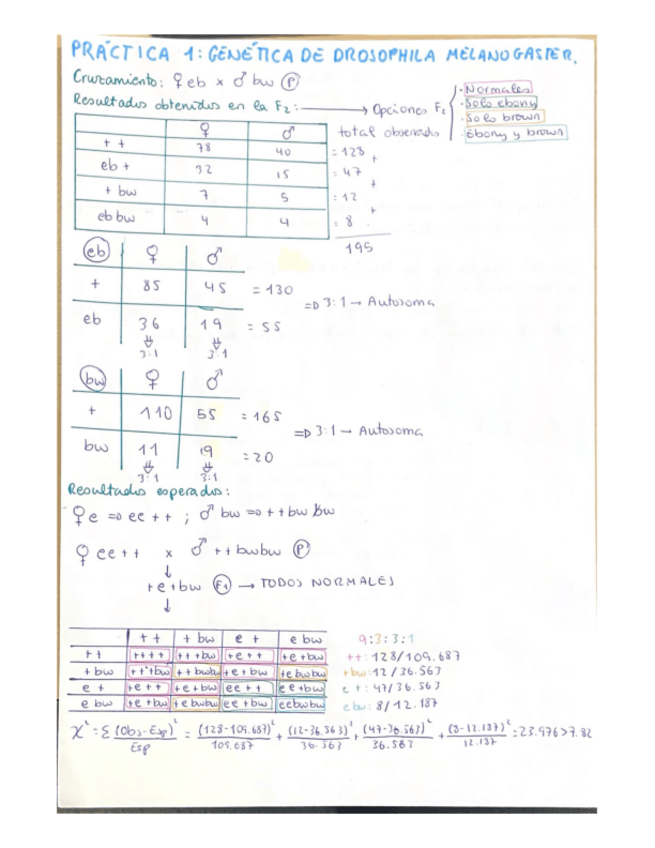 PRÁCTICA 1: GENÉTICA DE DROSOPHILA MELANOGASTER.
Cruzamiento: ♀ eb x ♂ bw Ⓟ
Resultados obtenidos en la F2: → Opciones F2
· Normales
· Solo ebony
· Solo brown
· Ebony y brown
♀ ♂ total observado
+ + 78 40 = 128 +
eb + 32 15 = 47 +
+ bw 7 5 = 12 +
eb bw 4 4 = 8
195
eb ♀ ♂
+ 85 45 = 130
=D 3:1 → Autosoma
eb 36 19 = 55
⇓ ⇓
3:1 3:1
bw ♀ ♂
+ 110 55 = 165
=D 3:1 → Autosoma
bw 11 9 = 20
⇓ ⇓
3:1 3:1
Resultados esperados:
♀ e => ee ++ ; ♂ bw => ++ bw bw
♀ ee ++ x ♂ ++ bwbw Ⓟ
↓
+e +bw F1 → TODOS NORMALES
↓
+ + + bw e + e bw 9:3:3:1
+ + ++++ +++bw +e++ +e+bw ++: 128/109.687
+ bw +++bw ++bwbw +e+bw +ebwbw +bw: 12/36.563
e + +e++ +e+bw ee++ ee+bw e+: 47/36.563
e bw +e+bw +ebwbw ee+bw eebwbw ebw: 8/12.187
X² = Σ (Obs - Esp)²/Esp = (128-109.687)²/109.687 + (12-36.563)²/36.563 + (47-36.563)²/36.563 + (8-12.187)²/12.187 = 23.976 > 7.82